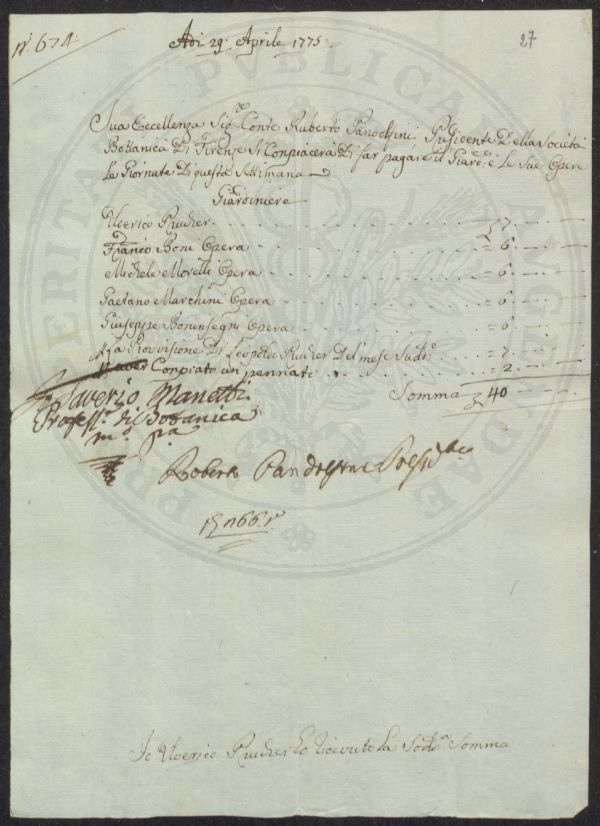 N.º 674.
27
Adi 29. Aprile 1775.
Sua Eccellenza Sig.re Conte Ruberto Pandolfini Presidente Della Società
Bottanica Di Firenze Si Conpiacerà Di far pagare il Giard.e e Le Sue Opere
Le Giornate Di questa Settimana
Giardiniere
Ulderico Prucher . . . 7. — —
Franco Boni Opera . . . = 6. — —
Michele Morelli Opera . . . = 6. — —
Gaetano Marchini Opera . . . = 6. — —
Giuseppe Boninsegni Opera . . . = 6. — —
La Provisione Di Leopoldo Prucher Del mese Sud.o . . . = 7. — —
Conpiato un pennato . . . = 2. — —
Somma 40 — —
Saverio Manetti
Profess.re di Bottanica
m.o p.a
Roberto Pandolfini Presid.te
166.
Io Ulderico Prucher ho riceuto La Sud.a Somma
PERITALI PUBLICAE ANGELICAE